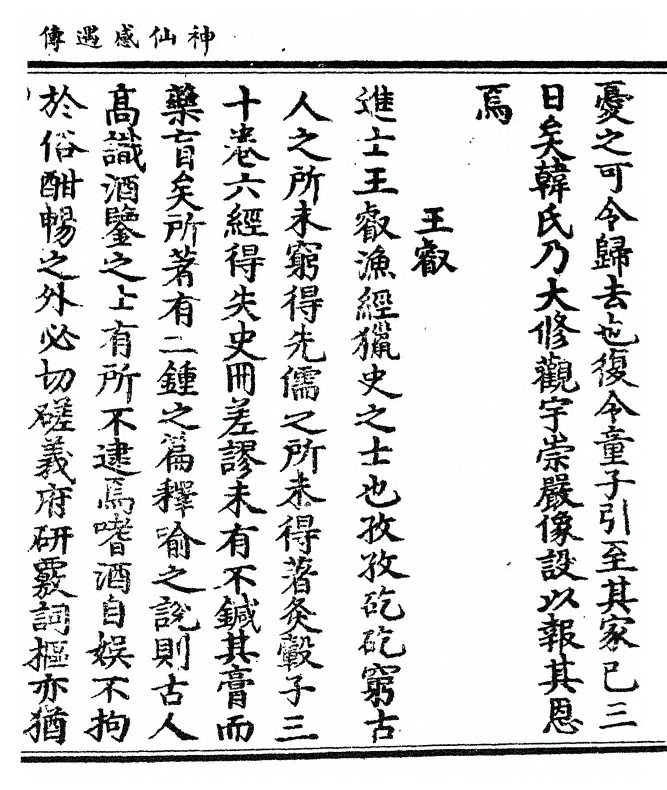 神仙感遇傳
憂之可令歸去也復令童子引至其家已三
日矣韓氏乃大修觀宇崇嚴像設以報其恩
焉
王叡
進士王叡漁經獵史之士也孜孜矻矻窮古
人之所未窮得先儒之所未得著炙轂子三
十卷六經得失史冊差謬未有不鍼其膏而
藥肓矣所著有二鍾之篇釋喻之說則古人
高識洒鑒之上有所不逮焉嗜酒自娛不拘
於俗酣暢之外必切磋義府研覈詞樞亦猶